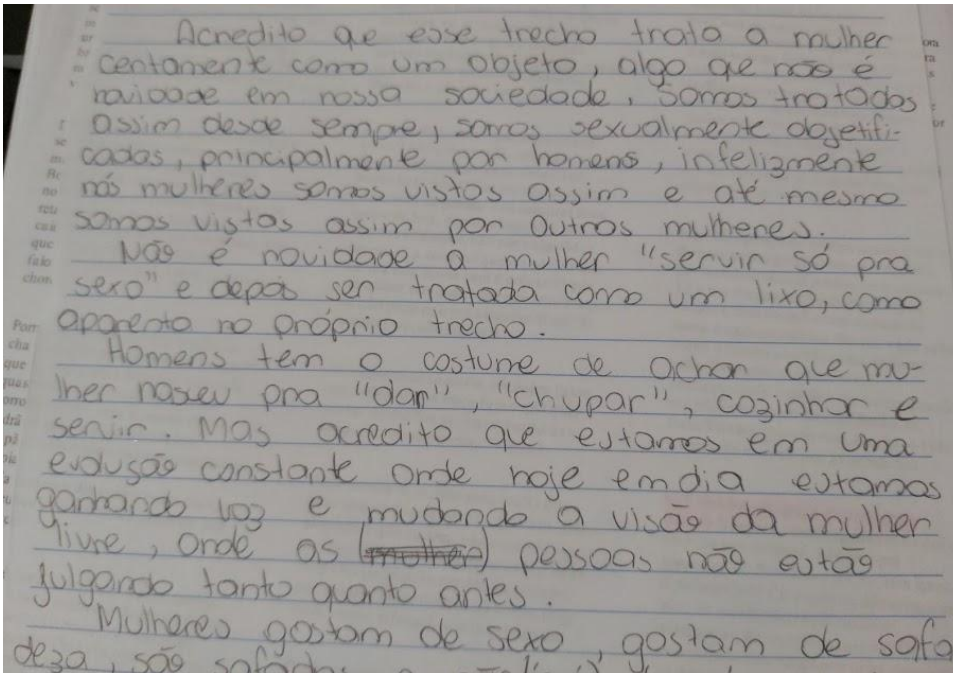 Acredito que esse trecho trata a mulher
certamente como um objeto, algo que não é
novidade em nossa sociedade, somos tratadas
assim desde sempre, somos sexualmente objetifi-
cadas, principalmente por homens, infelizmente
nós mulheres somos vistas assim e até mesmo
somos vistas assim por outras mulheres.
Não é novidade a mulher "servir só pra
sexo" e depois ser tratada como um lixo, como
aparenta no próprio trecho.
Homens tem o costume de achar que mu-
lher naseu pra "dar", "chupar", cozinhar e
servir. Mas acredito que estamos em uma
evolusão constante onde hoje em dia estamos
ganhando voz e mudando a visão da mulher
livre, onde as (mulher) pessoas não estão
julgando tanto quanto antes.
Mulheres gostam de sexo, gostam de safa
deza, são